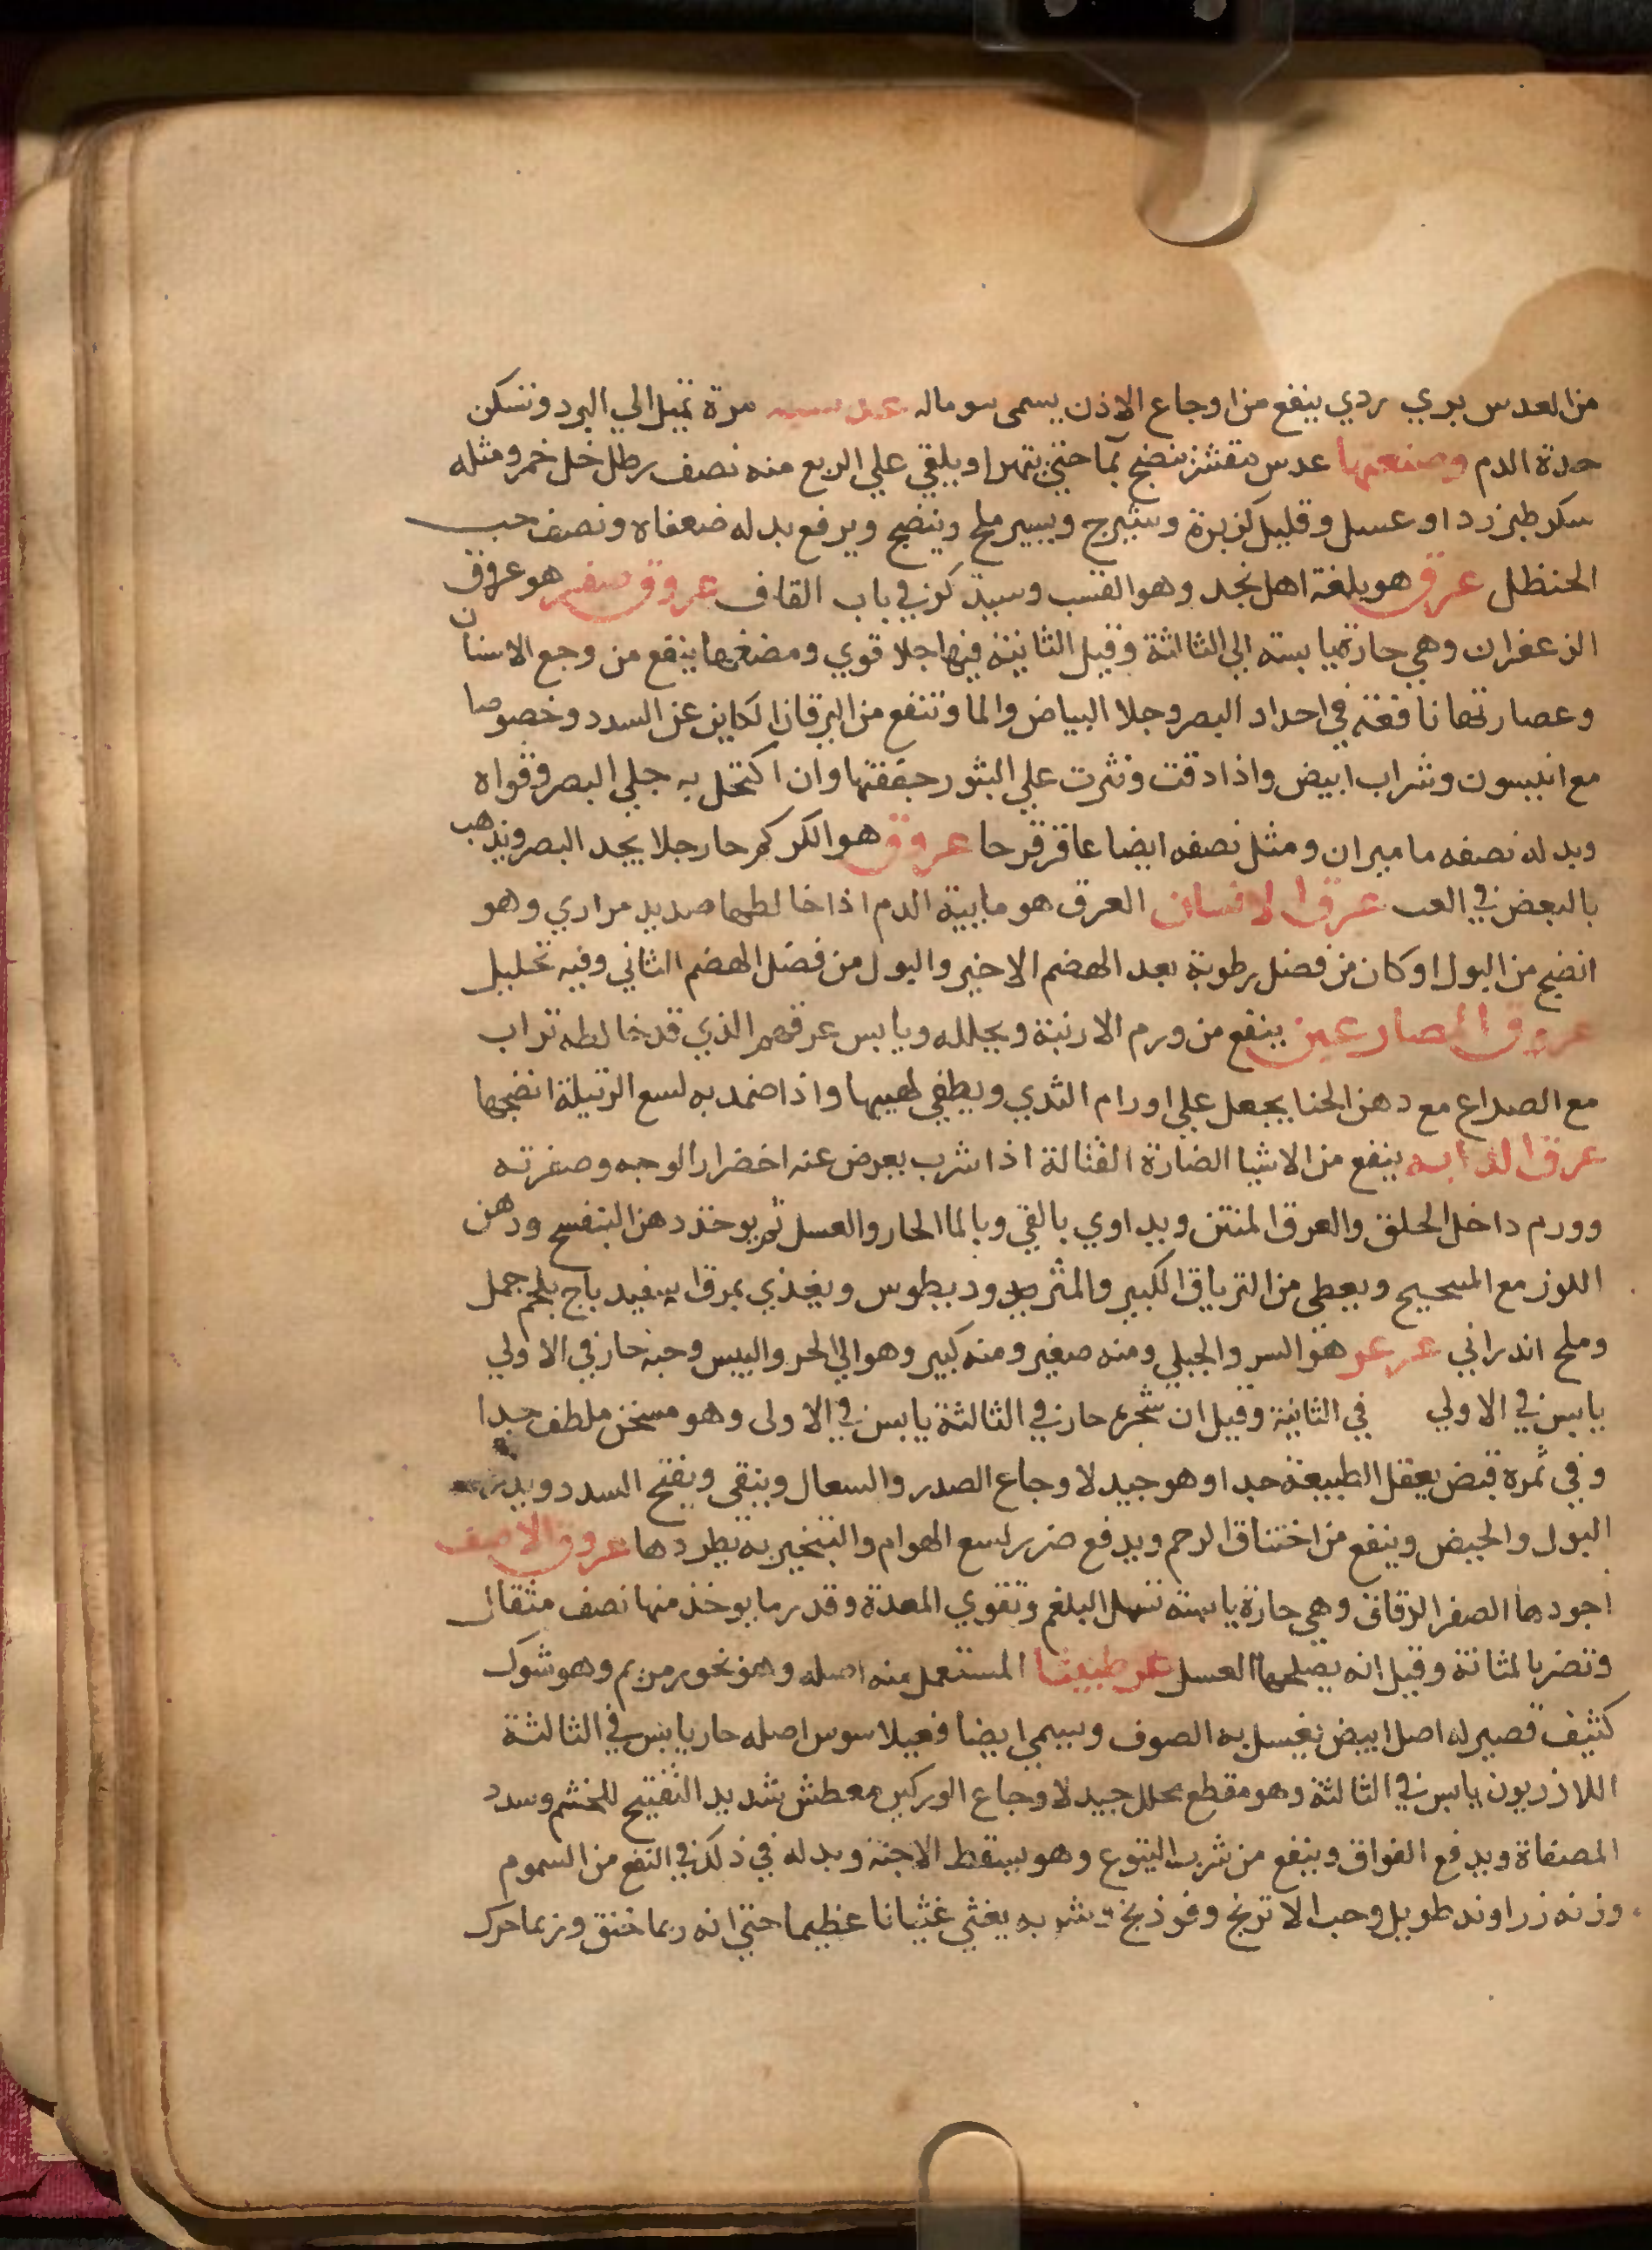 من العدس بري ردي ينفع من اوجاع الاذن يسمى سومالہ عدسيه مرة تميل الي البرد وتسكن
حدة الدم وصنعتها عدس مقشر ينضج بما حتي يتهرا ويلقي علي الربع منه نصف رطل خل خمر ومثله
سكر طبرزد او عسل وقليل كزبرة وشيرج ويسير ملح وينضج ويرفع بدله ضعفاه ونصف حب
الحنظل عرق هو بلغة اهل نجد وهو القسب وسيذكر في باب القاف عروق صفر هو عروق
الزعفران وهي حارة يابسة الي الثالثة وقيل الثانية فيها جلا قوي ومضغها ينفع من وجع الاسنان
وعصارتها نافعة في احداد البصر وجلا البياض والما وتنفع من اليرقان الكاين عن السدد وخصوصا
مع انيسون وشراب ابيض واذا دقت ونثرت علي البثور جففتها وان اكتحل به جلي البصر وقواه
وبدله نصفه ماميران ومثل نصفه ايضا عاقرقرحا عروق هو الكركم حار جلا يحد البصر ويذهب
بالبعض في العب عرق الانسان العرق هو مايية الدم اذا خالطها صديد مراري وهو
انضج من البول اوكان من فضل رطوبة بعد الهضم الاخير والبول من فضل الهضم الثاني وفيه تحليل
عروق المصارعين ينفع من ورم الارنبة ويحلله ويابس عرقهم الذي قد خالطه تراب
مع الصداع مع دهن الحنا يجعل علي اورام الثدي ويطفي لهيبها واذا ضمد به لسع الرتيلة انضجها
عرق الدابه ينفع من الاشيا الضارة القتالة اذا شرب يعرض عنه اخضرار الوجه وصفرته
وورم داخل الحلق والعرق المنتن ويداوي بالقي وبالما الحار والعسل ثم يوخذ دهن البنفسج ودهن
اللوز مع المسحيح ويعطي من الترياق الكبير والمثروديطوس ويغذي بمرق اسفيدباج بلحم جمل
وملح اندراني عرعر هو السرو الجبلي ومنه صغير ومنه كبير وهو الي الحر واليبس وحبه حار في الاولي
يابس في الاولي في الثانية وقيل ان شجره حار في الثالثة يابس في الاولى وهو مسخن ملطف جدا
وفي ثمره قبض يعقل الطبيعة جدا وهو جيد لاوجاع الصدر والسعال وينقي ويفتح السدد ويدر
البول والحيض وينفع من اختناق الرحم ويدفع ضرر لسع الهوام والتبخير به يطردها عروق الاصف
اجودها الصفر الرقاق وهي حارة يابسة تسهل البلغم وتقوي المعدة وقدر ما يوخذ منها نصف مثقال
وتضر بالمثانة وقيل انه يصلحها العسل عرطنيثا المستعمل منه اصله وهو نحور مريم وهو شوك
كثيف قصير له اصل ابيض يغسل به الصوف ويسمي ايضا فعيلاسوس اصله حار يابس في الثالثة
اللازريون يابس في الثالثة وهو مقطع محلل جيد لاوجاع الوركين معطش شديد التفتيح للخشم وسدد
المصفاة ويدفع الفواق وينفع من شرب اليتوع وهو يسقط الاجنة وبدله في ذلك في النفع من السموم
وزنه زراوند طويل وحب الاترنج وفوذنج وشربه يغثي غثيانا عظيما حتي انه ربما خنق وربما حرك